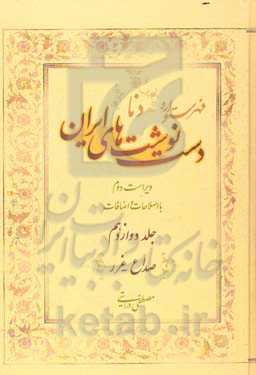 فهرستواره
دنا
دست نوشت های ایران
ویراست دوم
با اصلاحات و اضافات
جلد دوازدهم
صداع - غرر
مصطفی درایتی
خانه کتاب و ادبیات ایران
ketab.ir